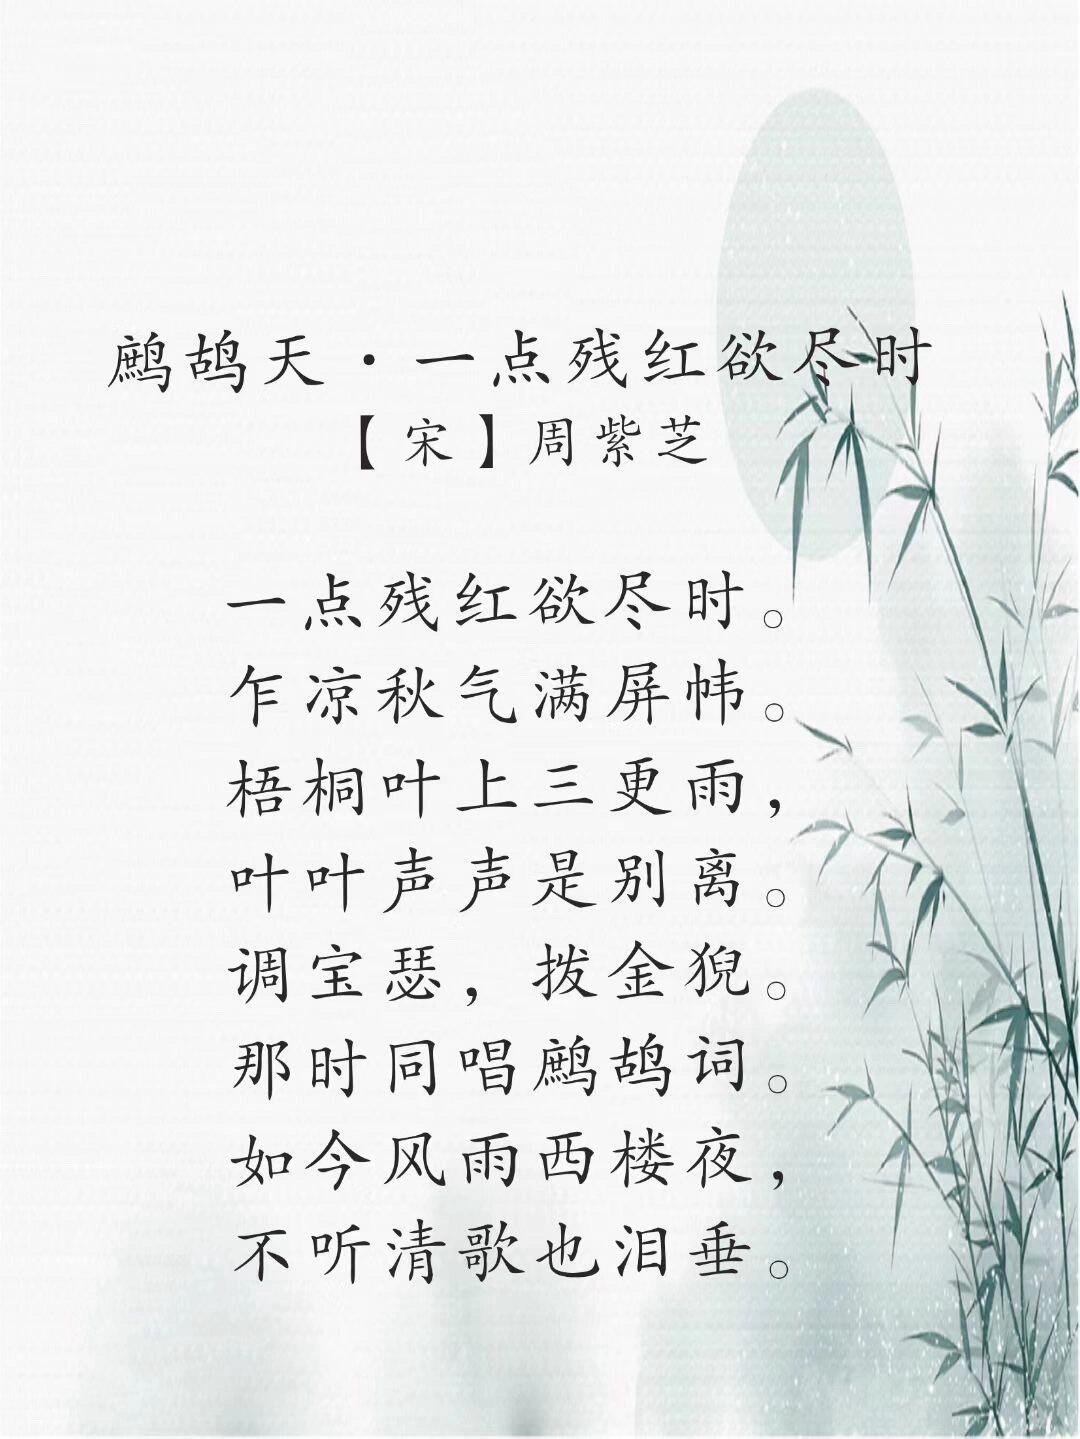 鹧鸪天·一点残红欲尽时
【宋】周紫芝
一点残红欲尽时。
乍凉秋气满屏帏。
梧桐叶上三更雨，
叶叶声声是别离。
调宝瑟，拨金猊。
那时同唱鹧鸪词。
如今风雨西楼夜，
不听清歌也泪垂。